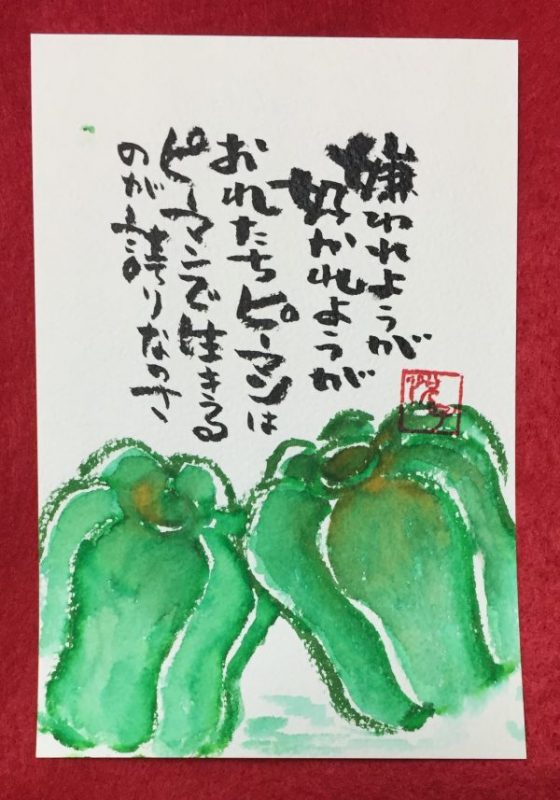 嫌われようが
好かれようが
おれたちピーマンは
ピーマンで生きる
のが誇りなのさ